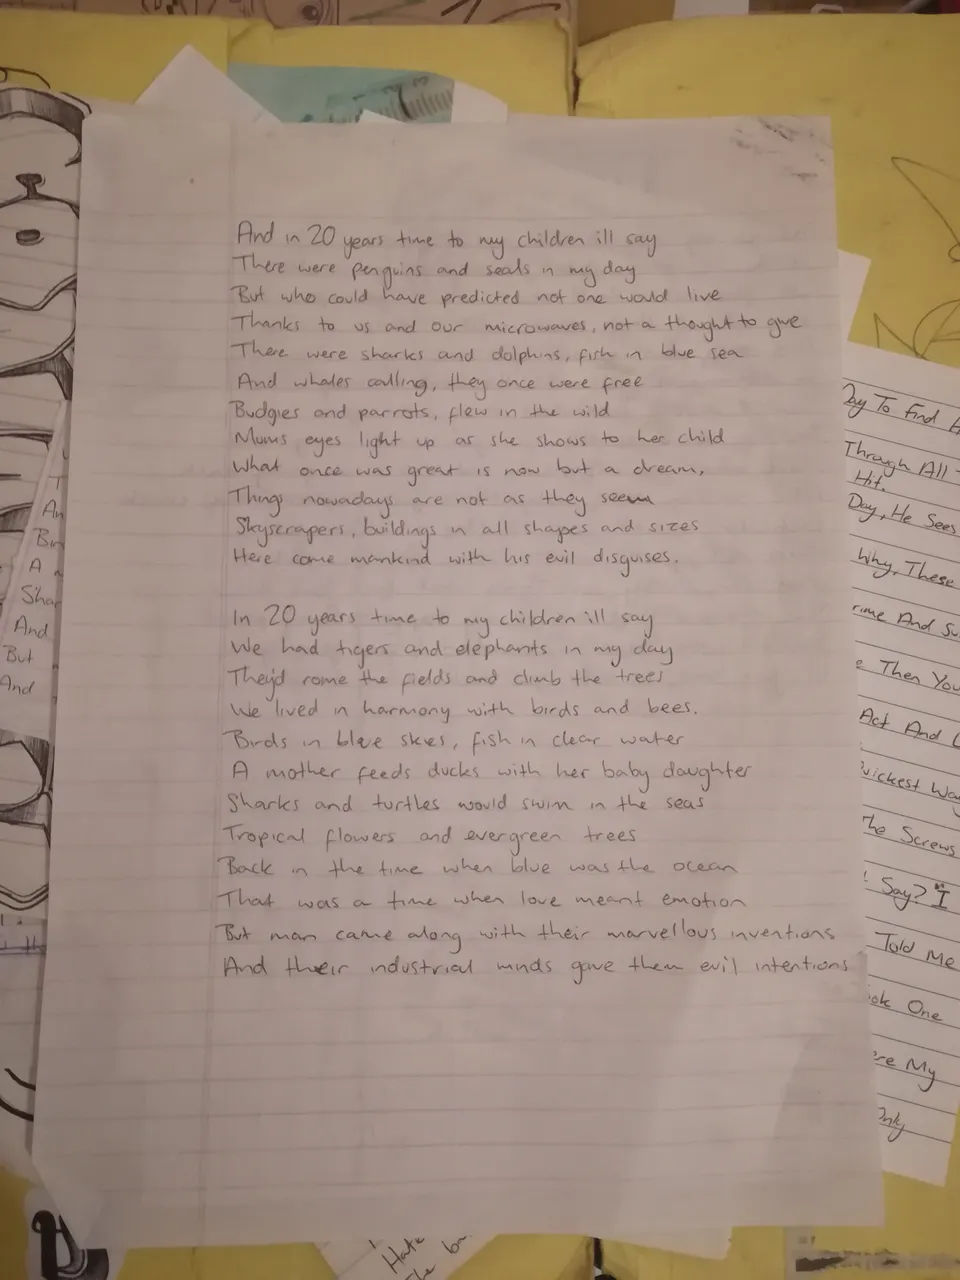 And in 20 years time to my children ill say
There were penguins and seals in my day
But who could have predicted not one would live
Thanks to us and our microwaves, not a thought to give
There were sharks and dolphins, fish in blue sea
And whales calling, they once were free
Budgies and parrots, flew in the wild
Mums eyes light up as she shows to her child
What once was great is now but a dream,
Things nowadays are not as they seem
Skyscrapers, buildings in all shapes and sizes
Here come mankind with his evil disguises.
In 20 years time to my children ill say
We had tigers and elephants in my day
They'd rome the fields and climb the trees
We lived in harmony with birds and bees.
Birds in blue skies, fish in clear water
A mother feeds ducks with her baby daughter
Sharks and turtles would swim in the seas
Tropical flowers and evergreen trees
Back in the time when blue was the ocean
That was a time when love meant emotion
But man came along with their marvellous inventions
And their industrial minds gave them evil intentions
Day To Find
Through All
Hit.
Day, He Sees
Why, These
And
Then You
Act And
Quickest
The Screws
Say? I
Told Me
One
My
Only
And
But
And
A
Hate